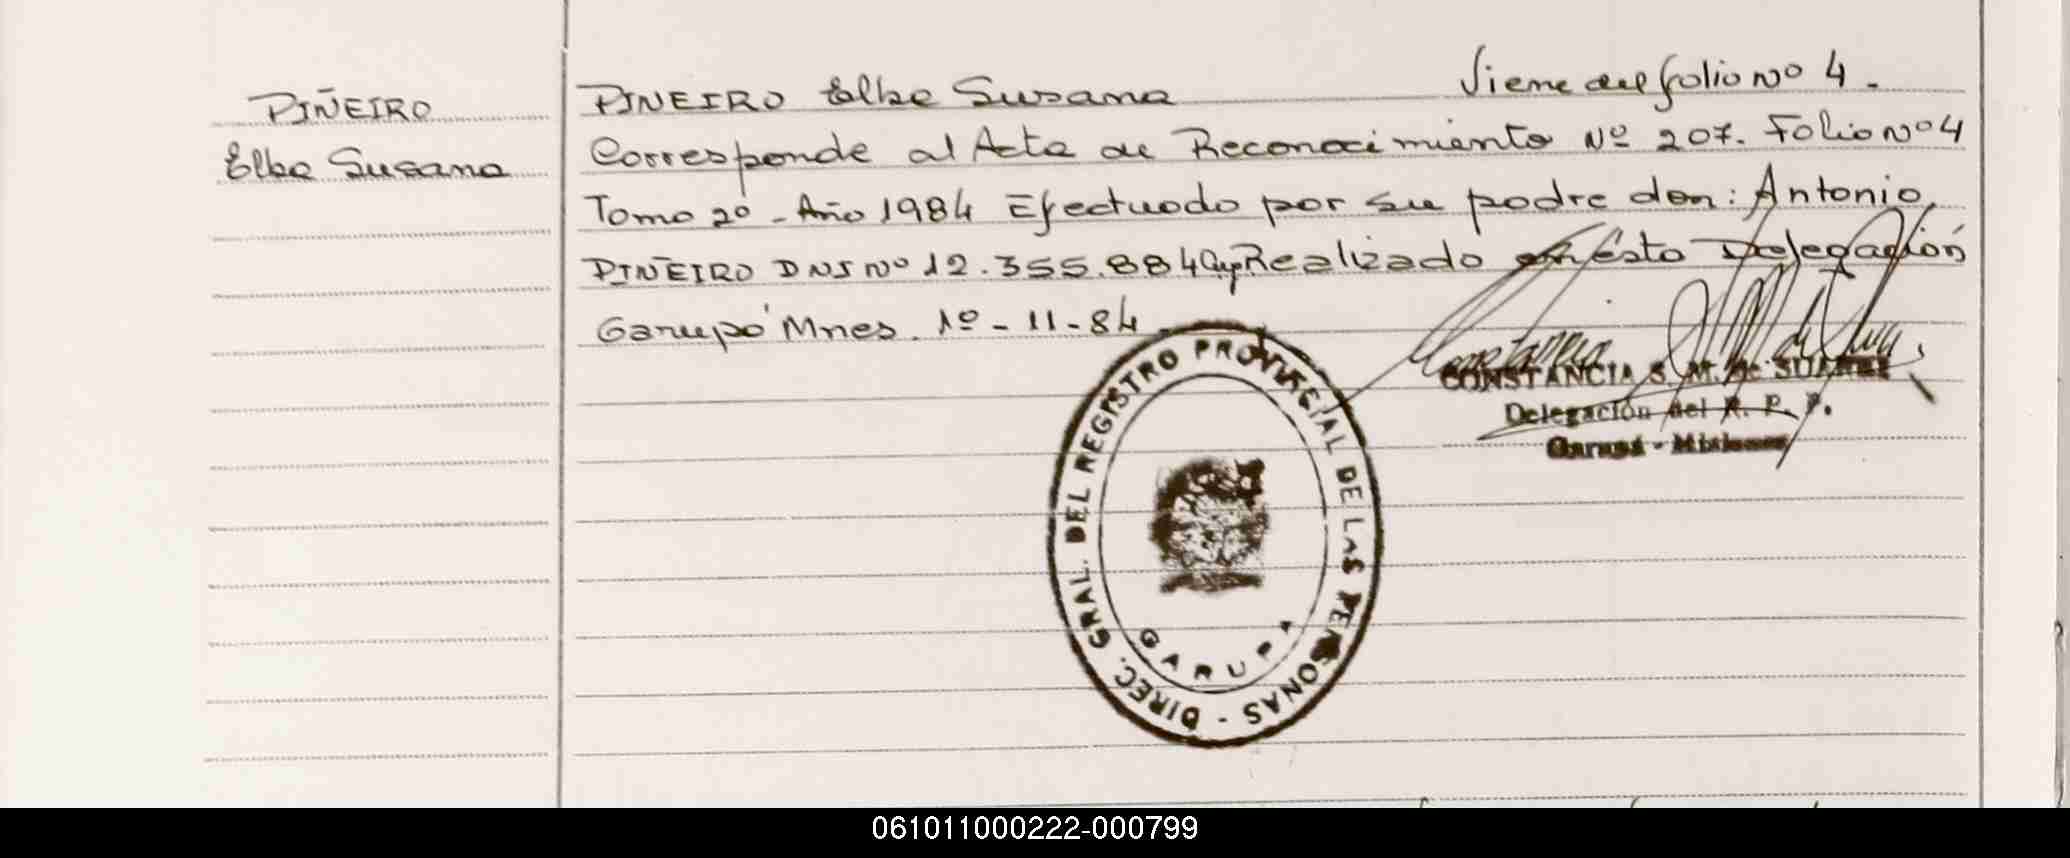 PIÑEIRO
Elba Susana
PIÑEIRO Elba Susana Viene del folio Nº 4.-
Corresponde al Acta de Reconocimiento Nº 207. Folio Nº 4
Tomo 2º - Año 1984 Efectuado por su padre don: Antonio
PIÑEIRO DNI Nº 12.355.884 Realizado en esta Delegación
Garupá Mnes. 1º - 11 - 84.
CONSTANCIA S. M. de SUAREZ
Delegación del R. P. P.
Garupá - Misiones
DIREC. GRAL. DEL REGISTRO PROVINCIAL DE LAS PERSONAS -
GARUPA
061011000222-000799